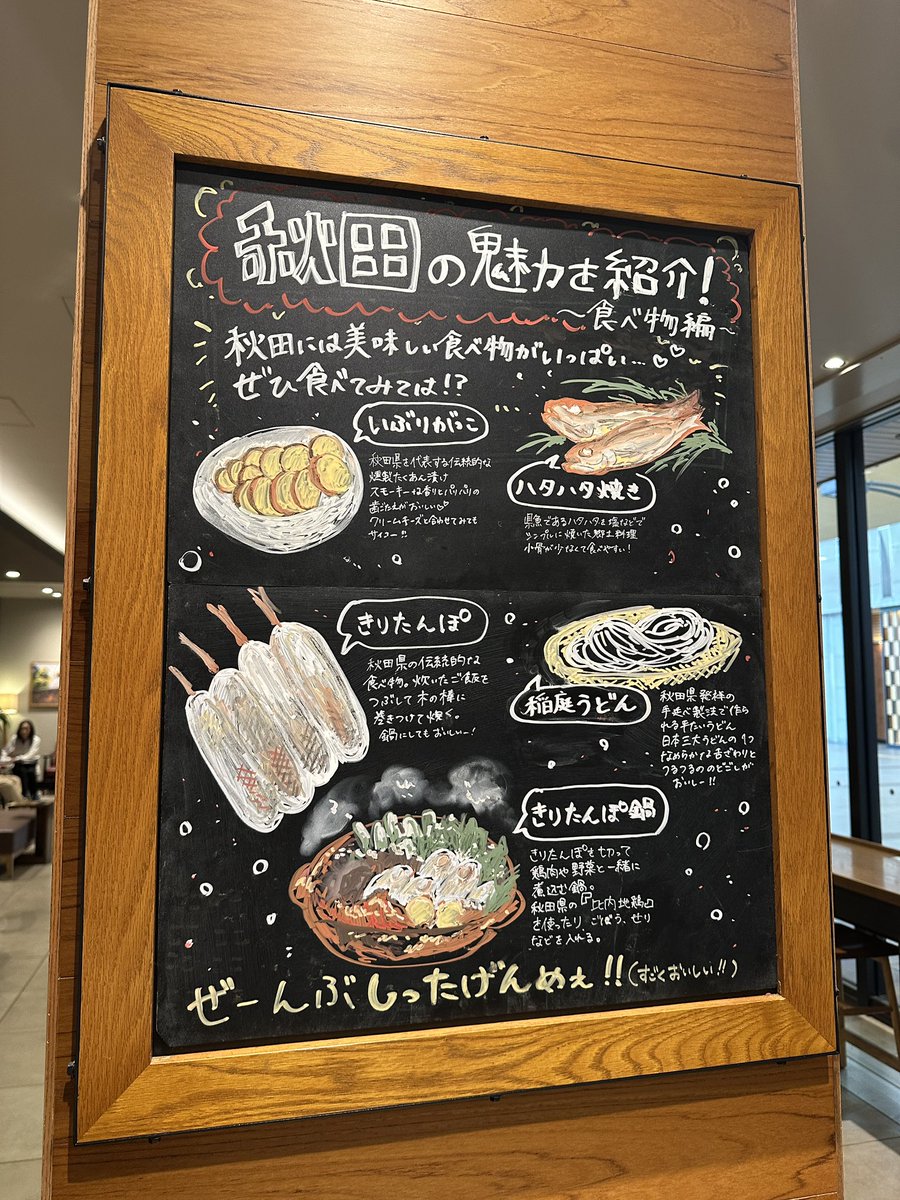 秋田の魅力を紹介!
～食べ物編～
秋田には美味しい食べ物がいっぱい…♡♡
ぜひ食べてみては!?
いぶりがっこ
秋田県を代表する伝統的な
燻製たくあん漬け
スモーキーな香りとパリパリの
歯ごたえがおいしい♡
クリームチーズと合わせてみても
サイコー!!
ハタハタ焼き
県魚であるハタハタを塩などで
シンプルに焼いた郷土料理
小骨が少なくて食べやすい!
きりたんぽ
秋田県の伝統的な
食べ物。炊いたご飯を
つぶして木の棒に
巻きつけて焼く。
鍋にしてもおいしいー!
稲庭うどん
秋田県発祥の
手延べ製法で作ら
れる平たいうどん
日本三大うどんの1つ
なめらかな舌ざわりと
つるつるののどごしが
おいしー!!
きりたんぽ鍋
きりたんぽを切って
鶏肉や野菜と一緒に
煮込む鍋。
秋田県の『比内地鶏』
を使ったり、ごぼう、せり
などを入れる。
ぜーんぶしったげんめぇ!!(すごくおいしい!!)